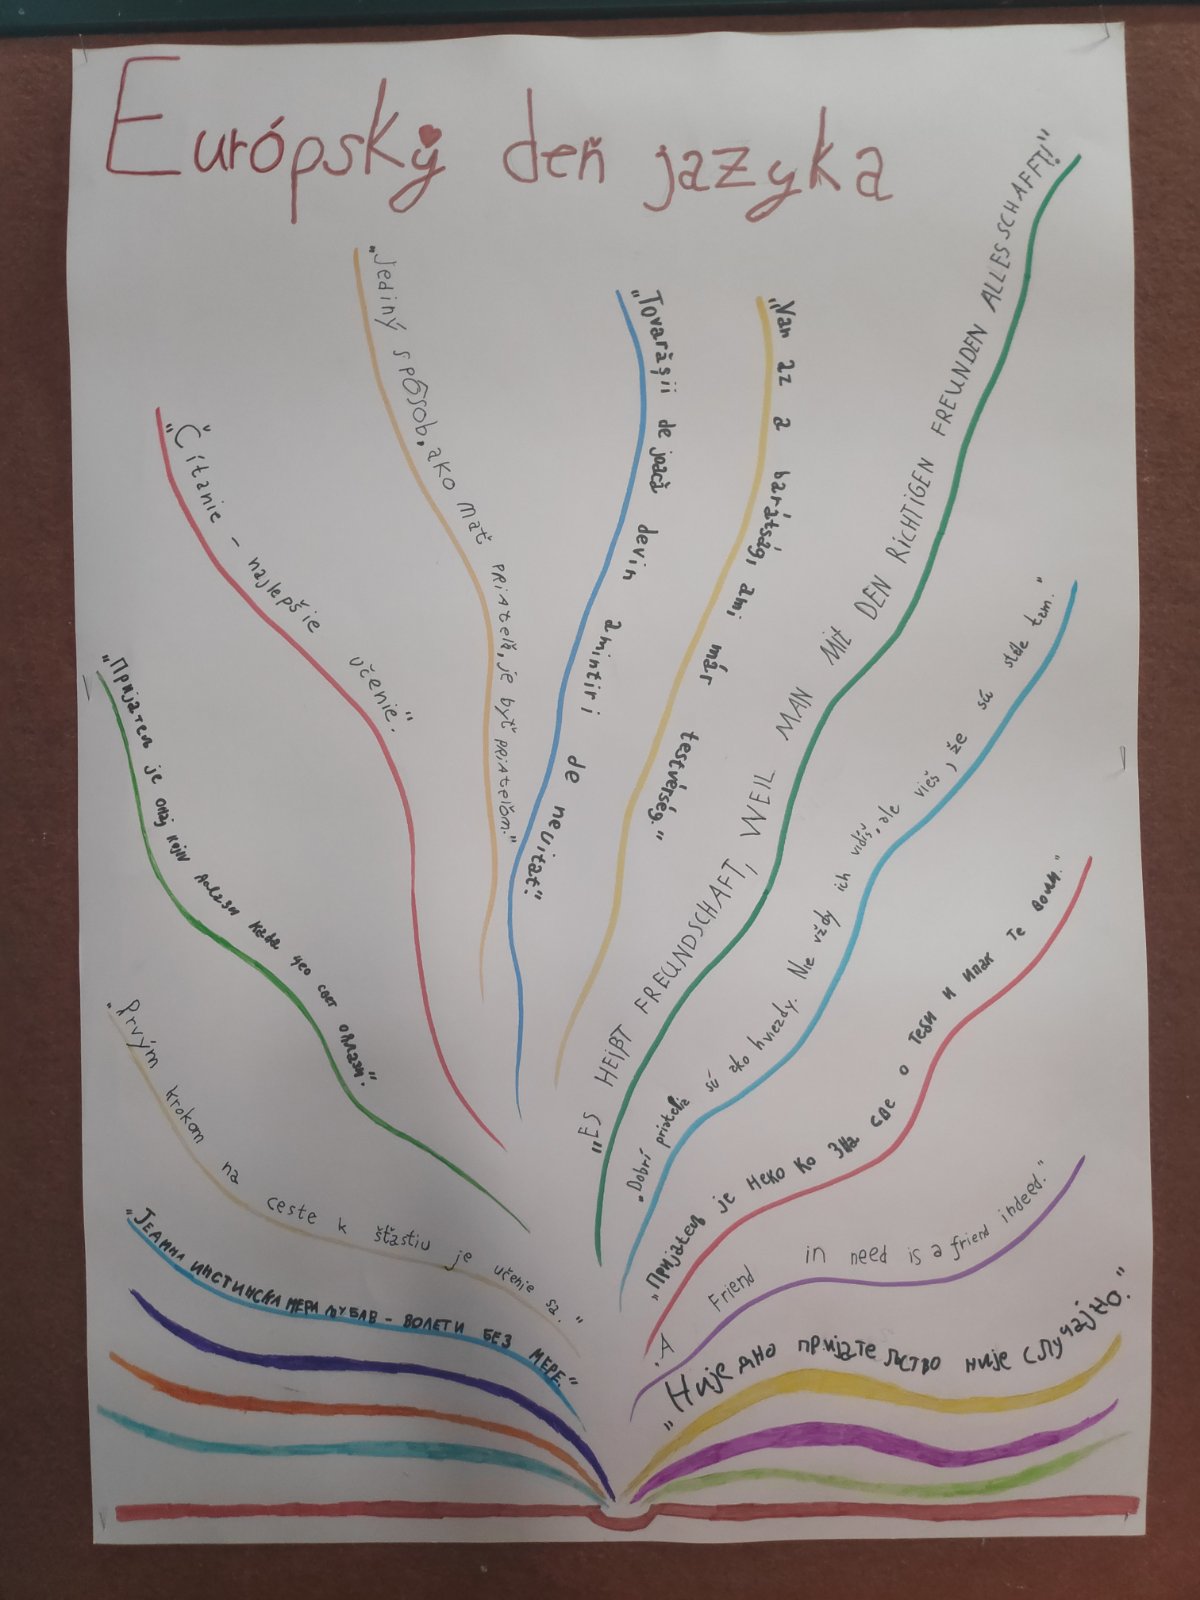 Európský deň jazyka
„Jediný spôsob, ako mať priateľa, je byť priateľom."
„Tovarășii de joacă devin amintiri de neuitat!"
„Van az a barátság, ami már testvérség."
„ES HEIßT FREUNDSCHAFT, WEIL MAN MIT DEN RICHTIGEN FREUNDEN ALLES SCHAFFT!"
„Čítanie – najlepšie učenie."
„Dobrí priatelia sú ako hviezdy. Nie vždy ich vidíš, ale vieš, že sú stále tam."
„Пријатељ је онај који долази када цео свет одлази."
„Пријатељ је неко ко зна све о теби и ипак те воли."
„Prvým krokom na ceste k šťastiu je učenie sa."
„A Friend in need is a friend indeed."
„ЈЕДИНА ИНСТИНСКА МЕРА ЉУБАВ – ВОЛЕТИ БЕЗ МЕРЕ."
„Није дно пријатељство није случајно."